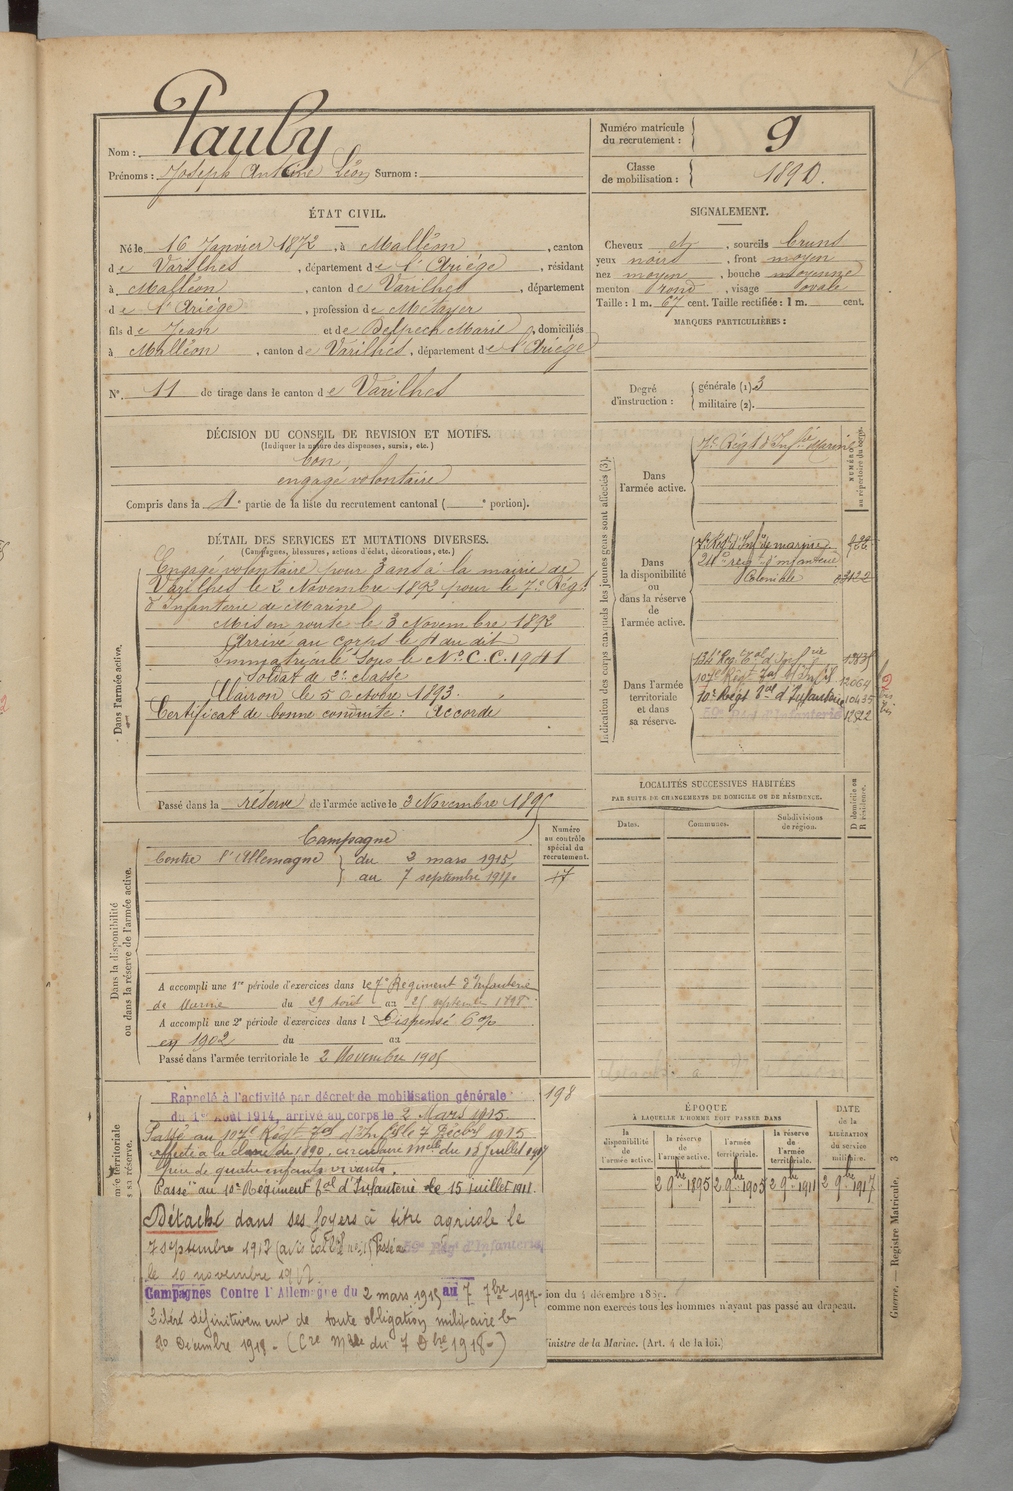 Nom : Pauly
Prénoms : Joseph Antoine Léon Surnom :
Numéro matricule du recrutement : 9
Classe de mobilisation : 1890.
ÉTAT CIVIL.
Né le 16 Janvier 1872, à Malléon, canton
de Varilhes, département de l'Ariége, résidant
à Malléon, canton de Varilhes, département
de l'Ariége, profession de Métayer
fils de Jean et de Delpech Marie, domiciliés
à Malléon, canton de Varilhes, département de l'Ariége
N° 11 de tirage dans le canton de Varilhes
SIGNALEMENT.
Cheveux et, sourcils bruns
yeux noirs, front moyen
nez moyen, bouche moyenne
menton rond, visage ovale
Taille : 1 m. 67 cent. Taille rectifiée : 1 m. cent.
MARQUES PARTICULIÈRES :
Degré d'instruction : générale (1). 3
militaire (2).
DÉCISION DU CONSEIL DE REVISION ET MOTIFS.
(Indiquer la nature des dispenses, sursis, etc.)
bon
engagé volontaire
Compris dans la 4e partie de la liste du recrutement cantonal ( e portion).
DÉTAIL DES SERVICES ET MUTATIONS DIVERSES.
(Campagnes, blessures, actions d'éclat, décorations, etc.)
Dans l'armée active.
Engagé volontaire pour 3 ans à la mairie de
Varilhes le 2 Novembre 1892 pour le 7e Régt
d'Infanterie de Marine
Mis en route le 3 Novembre 1892
Arrivé au corps le 4 du dit
Immatriculé sous le No C.C. 1941
Soldat de 2e classe
Clairon le 5 Octobre 1893.
Certificat de bonne conduite : Accordé
Passé dans la réserve de l'armée active le 3 Novembre 1895
Indication des corps auxquels les jeunes gens sont affectés (3).
NUMÉRO au répertoire du corps.
Dans l'armée active. 7e Régt d'Infie Marine
Dans la disponibilité ou dans la réserve de l'armée active.
7e Régt d'Infie de marine
24e régt d'infanterie
Coloniale
Dans l'armée territoriale et dans sa réserve.
134e Rég. Tal d'Infie
107e Régt Tal d'Inf
10e Régt Tal d'Infanterie 10435
59e Régt d'Infanterie
LOCALITÉS SUCCESSIVES HABITÉES
PAR SUITE DE CHANGEMENTS DE DOMICILE OU DE RÉSIDENCE.
Dates. Communes. Subdivisions de région. D domicile ou R résidence.
Dans la disponibilité ou dans la réserve de l'armée active.
Campagne
Contre l'Allemagne du 2 mars 1915
au 7 septembre 1917.
Numéro au contrôle spécial du recrutement.
17
A accompli une 1re période d'exercices dans le 7e Régiment d'Infanterie
de Marine du 29 août au 25 septembre 1898.
A accompli une 2e période d'exercices dans l Dispensé
en 1902 du au
Passé dans l'armée territoriale le 2 Novembre 1905
198
Rappelé à l'activité par décret de mobilisation générale
du 1er Août 1914, arrivé au corps le 2 Mars 1915.
Passé au 107e Régt Tal d'Inf le 7 Décbre 1915
affecté à la classe de 1890, circulaire mlle du 18 Juillet 1917
père de quatre enfants vivants.
Passé au 10e Régiment Tal d'Infanterie le 15 juillet 1911.
Détaché dans ses foyers à titre agricole le
7 septembre 1917 Passé au 59e Régt d'Infanterie
le 10 novembre 1917.
Campagnes Contre l'Allemagne du 2 mars 1915 au 7 7bre 1917.
Libéré définitivement de toute obligation militaire le
20 Décembre 1918. (Cre Mlle du 7 Dbre 1918.)
ÉPOQUE
À LAQUELLE L'HOMME DOIT PASSER DANS
la disponibilité de l'armée active.
la réserve de l'armée active.
l'armée territoriale.
la réserve de l'armée territoriale.
DATE de la LIBÉRATION du service militaire.
2 9bre 1895
2 9bre 1905
2 9bre 1911
2 9bre 1917
comme non exercés tous les hommes n'ayant pas passé au drapeau.
Ministre de la Marine. (Art. 4 de la loi.)
Guerre. — Registre Matricule. 3